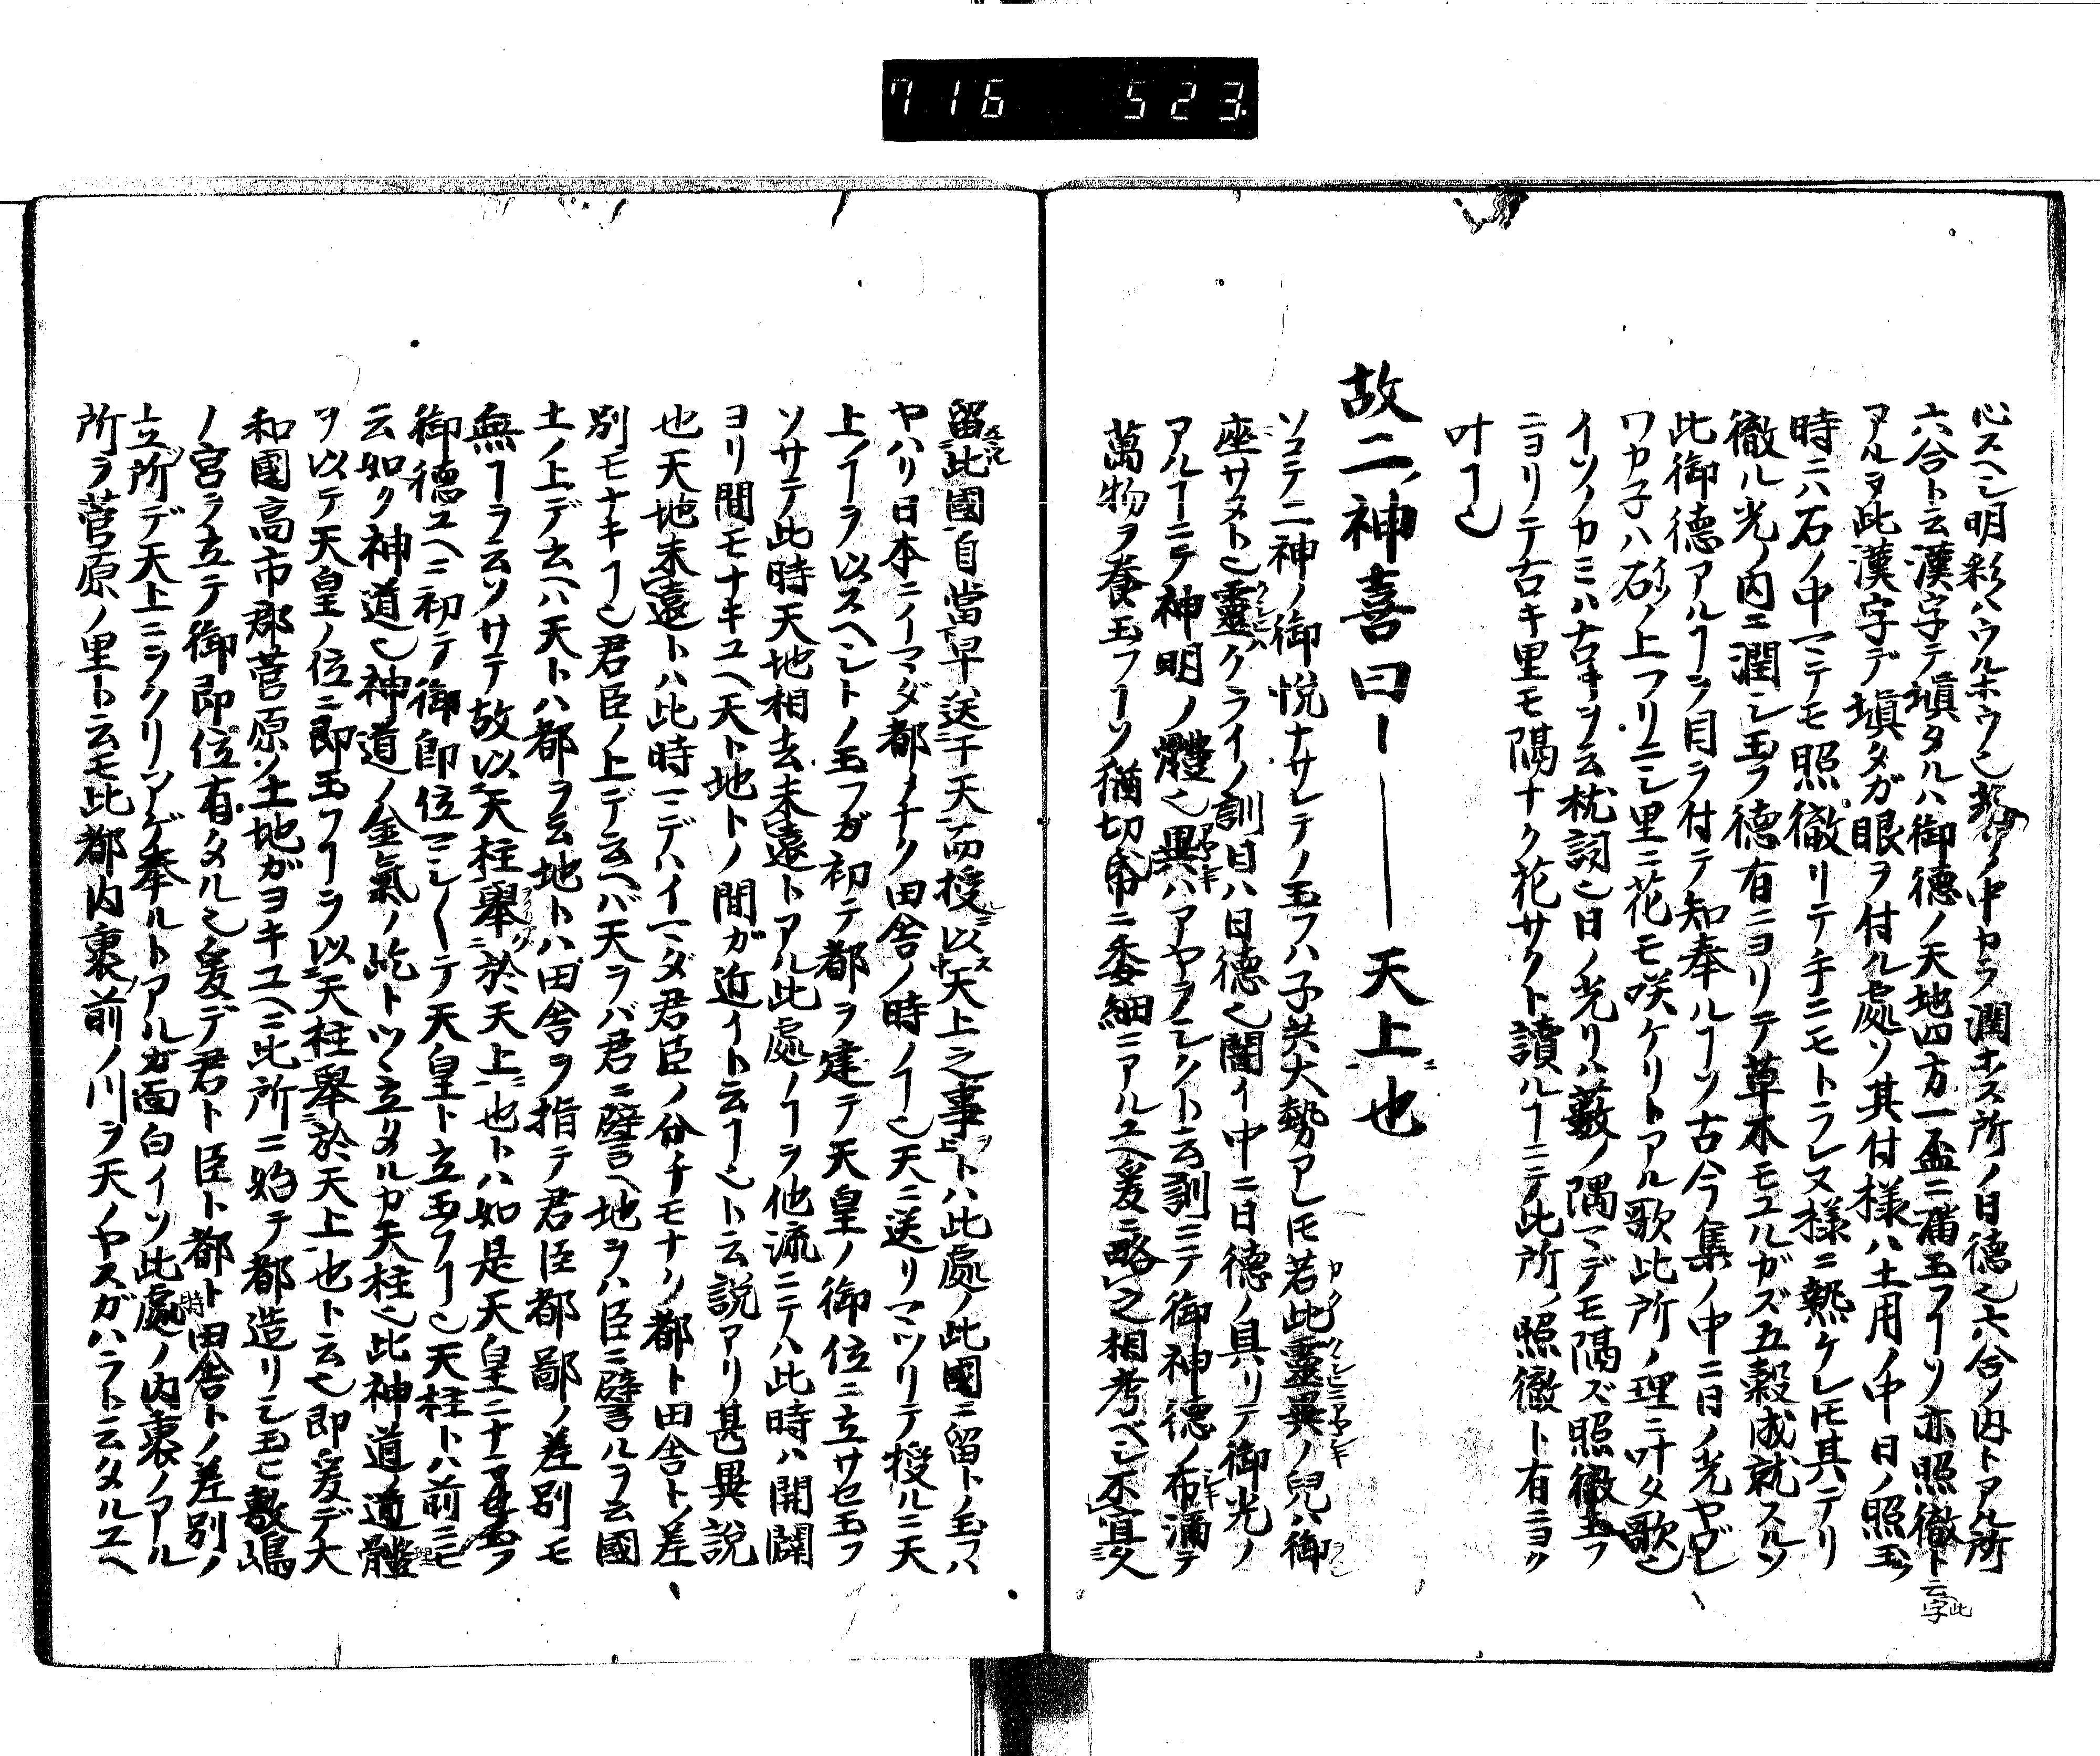 716 523
心スヘシ明彩ハウルホウ也努力ノ中カラ潤ホス所ノ日徳也六合ノ内トアル所
六合ト云漢字テ塡タルハ御徳ノ天地四方一盃ニ満玉フヿソ亦照徹ト云字此
アルヲ此漢字デ塡タガ眼ヲ付ル處ソ其付様ハ土用ノ中日ノ照玉フ
時ニハ石ノ中マテモ照徹リテ手ニモトラレヌ様ニ熱ケレ𪜈其テリ
徹ル光ノ内ニ潤シ玉フ徳有ニヨリテ草木モユルガズ五穀成就スルソ
此御徳アルヿヲ目ヲ付テ知奉ルヿソ古今集ノ中ニ日ノ光ヤブシ
ワカ子ハ石ノ上フリニシ里ニ花モ咲ケリトアル歌此所ノ理ニ叶タ歌也
イソノカミハ古キヲ云枕詞也日ノ光リハ藪ノ隅マデモ隔ズ照徹玉フ
ニヨリテ古キ里モ隔ナク花サクト讀ルヿニテ此所ノ照徹ト有ニヨク
叶ヿ也
故二神喜曰ー天上也
ソコテ二神ノ御悦ナサレテノ玉フハ子共大勢アレ𪜈若此靈異ノ兒ハ御
座サヌト也靈クライノ訓日ハ日徳也闇イ中ニ日徳ノ具リテ御光ノ
アルヿニテ神明ノ體也異ハアヤシクト云訓ニテ御神徳ノ布満テ
萬物ヲ養玉フヿソ猶切帋ニ委細ニアルユヘ爰ニ略ス之相考ベシ不宜久
留此國自當早送于天而授以天上之事トハ此處ノ此國ニ留トノ玉フハ
ヤハリ日本ニイマダ都ノナクノ田舎ノ時ノヿ也天ニ送リマツリテ授ルニ天
上ノヿヲ以スヘシトノ玉フガ初テ都ヲ建テ天皇ノ御位ニ立サセ玉フ
ソサテ此時天地相去未遠トアル此處ノヿヲ他流ニテハ此時ハ開闢
ヨリ間モナキユヘ天ト地トノ間ガ近イト云ヿ也ト云説アリ甚異説
也天地未遠トハ此時マデハイマダ君臣ノ分チモナク都ト田舎トノ差
別モナキヿ也君臣ノ上デ云ヘバ天ヲバ君ニ譬ヘ地ヲハ臣ニ譬ルヲ云國
土ノ上デ云ヘハ天トハ都ヲ云地トハ田舎ヲ指テ君臣都鄙ノ差別モ
無ヿヲ云ソサテ故以天柱擧於天上也トハ如是天皇ニナラセ玉フ
御徳ユヘニ初テ御即位マシ〱テ天皇ト立玉フヿ也天柱トハ前ニモ
云如ク神道也神道ノ金氣ノ此トツヽ立タルガ天柱也此神道ノ道體
ヲ以テ天皇ノ位ニ即玉フヿヲ以天柱擧於天上也ト云也即爰デ大
和國高市郡菅原ソ土地ガヨキユヘニ此所ニ始テ都造リシ玉ヒ敷嶋
ノ宮ヲ立テ御即位有タル也爰デ君ト臣ト都ト田舎トノ差別ノ
立所デ天上ニヲクリアゲ奉ルトアルガ面白イソ此處ノ内裏ノアル
所ヲ菅原ノ里ト云モ此都内裏ノ前ノ川ヲ天ノヤスガハラト云タルユヘ